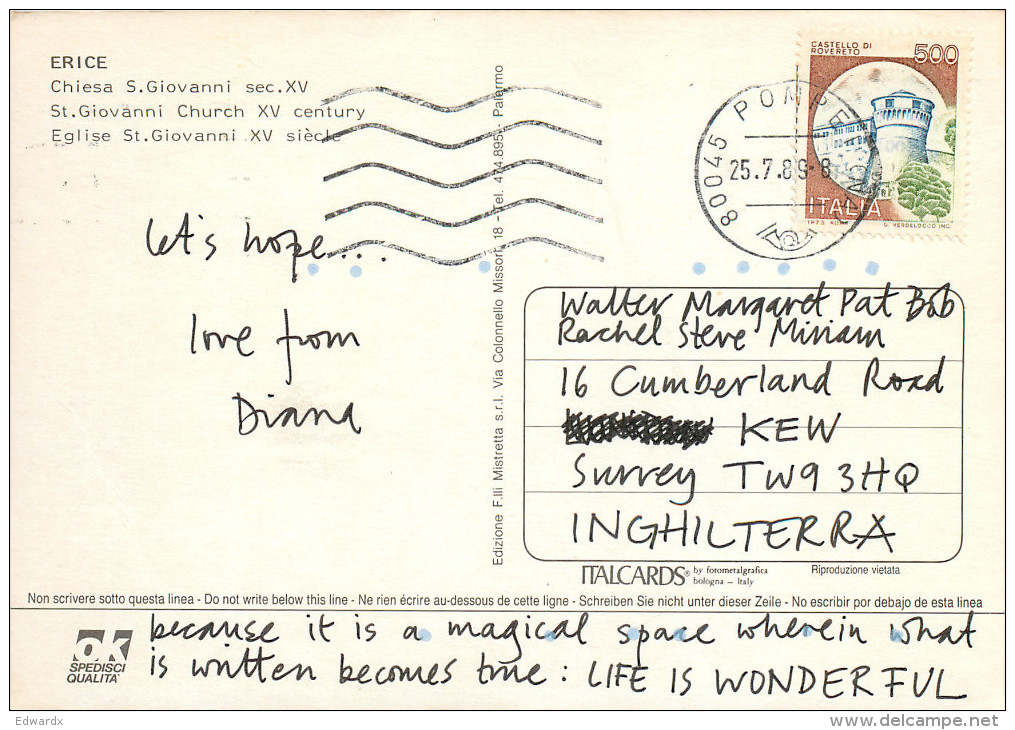 ERICE
Chiesa S.Giovanni sec.XV
St.Giovanni Church XV century
Eglise St.Giovanni XV siècle
Let's hope....
love from
Diana
Edizione F.lli Mistretta s.r.l. Via Colonnello Missori, 18 - Tel. 474.895 - Palermo
CASTELLO DI
ROVERETO
500
ITALIA
1973 ROMA
G. VERDELOCCO INC.
80045 POMPEI
25.7.89-8
Walter Margaret Pat Bob
Rachel Steve Miriam
16 Cumberland Road
KEW
Surrey TW9 3HQ
INGHILTERRA
ITALCARDS® by fotometalgrafica
bologna – Italy
Riproduzione vietata
Non scrivere sotto questa linea - Do not write below this line - Ne rien écrire au-dessous de cette ligne - Schreiben Sie nicht unter dieser Zeile - No escribir por debajo de esta linea
OK
SPEDISCI
QUALITA'
because it is a magical space wherein what
is written becomes true: LIFE IS WONDERFUL
Edwardx
delcampe.net